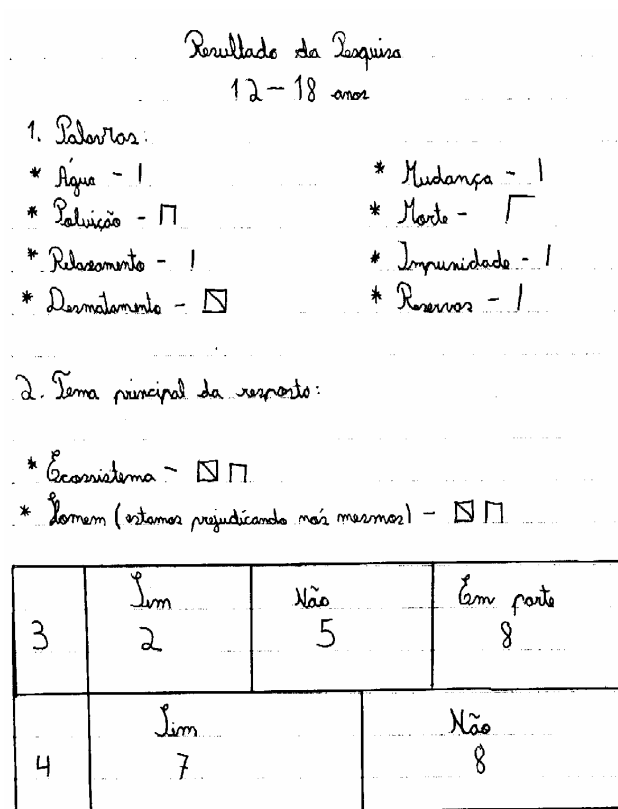 Resultado da Pesquisa
12 - 18 anos
1. Palavras:
* Água - |
* Poluição - ⊓
* Relaxamento - |
* Desmatamento - ⧅
* Mudança - |
* Morte - Γ
* Impunidade - |
* Reservas - |
2. Tema principal da resposta:
* Ecossistema - ⧅ ⊓
* Homem (estamos prejudicando nós mesmos) - ⧅ ⊓
3 Sim Não Em parte
2 5 8
4 Sim Não
7 8